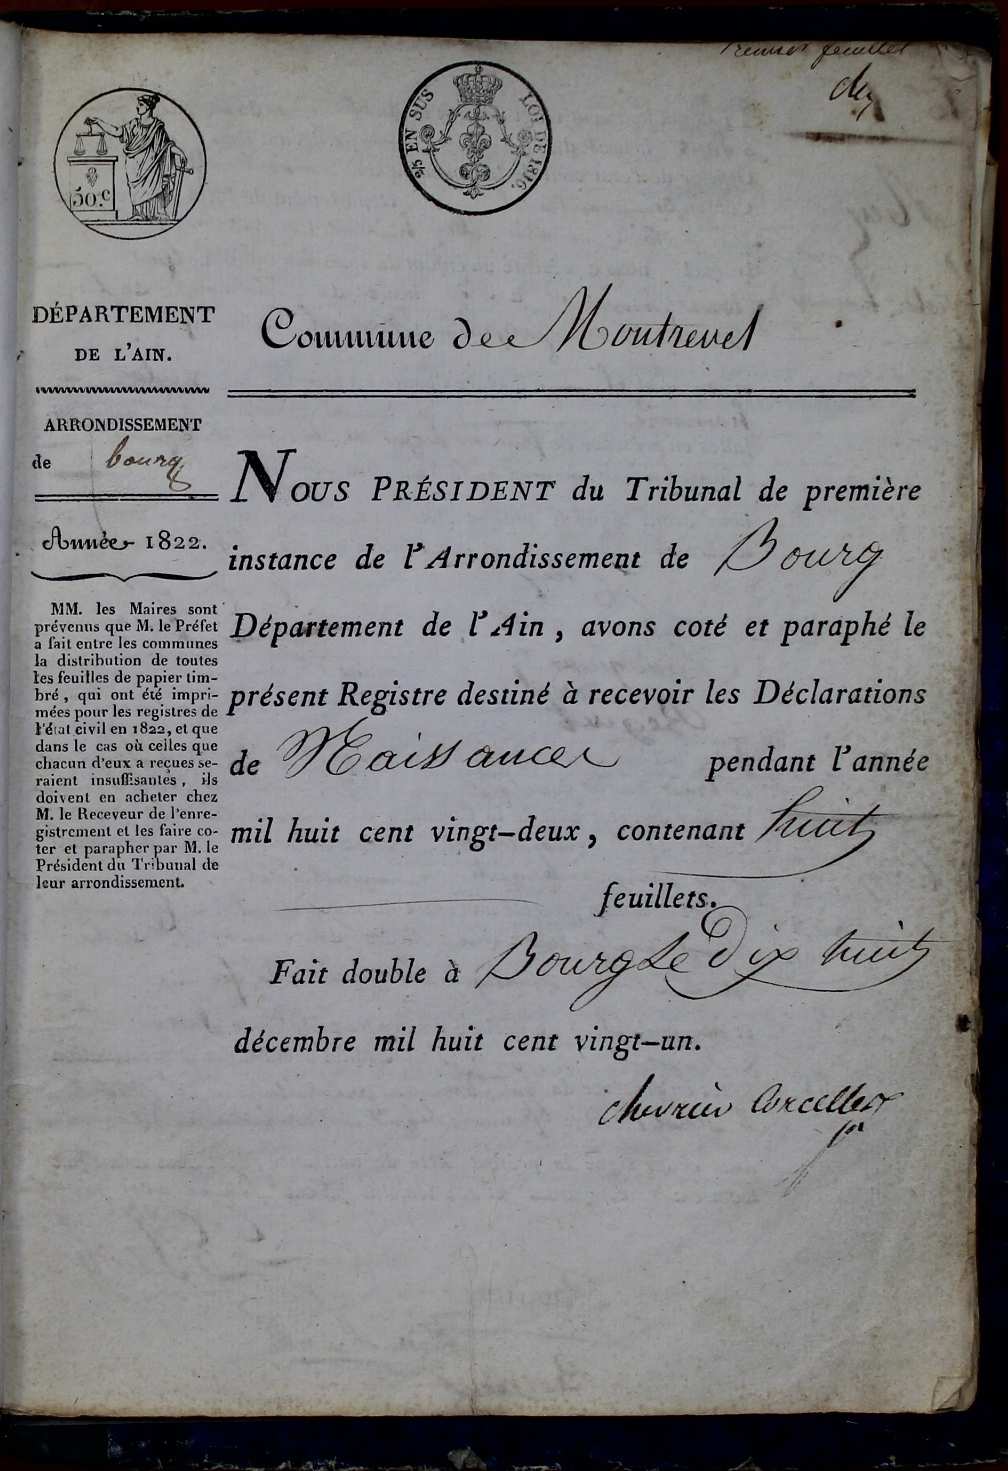 Premier feuillet
50.c
2/5 EN SUS
LOI DE 1816.
DÉPARTEMENT
DE L'AIN.
ARRONDISSEMENT
de bourg
Année 1822.
MM. les Maires sont
prévenus que M. le Préfet
a fait entre les communes
la distribution de toutes
les feuilles de papier tim-
bré, qui ont été impri-
mées pour les registres de
l'état civil en 1822, et que
dans le cas où celles que
chacun d'eux a reçues se-
raient insuffisantes, ils
doivent en acheter chez
M. le Receveur de l'enre-
gistrement et les faire co-
ter et parapher par M. le
Président du Tribunal de
leur arrondissement.
Commune de Montrevel
NOUS PRÉSIDENT du Tribunal de première
instance de l'Arrondissement de Bourg
Département de l'Ain, avons coté et paraphé le
présent Registre destiné à recevoir les Déclarations
de Naissances pendant l'année
mil huit cent vingt-deux, contenant huit
feuillets.
Fait double à Bourg Le Dix huit
décembre mil huit cent vingt-un.
chevrier Corcelles